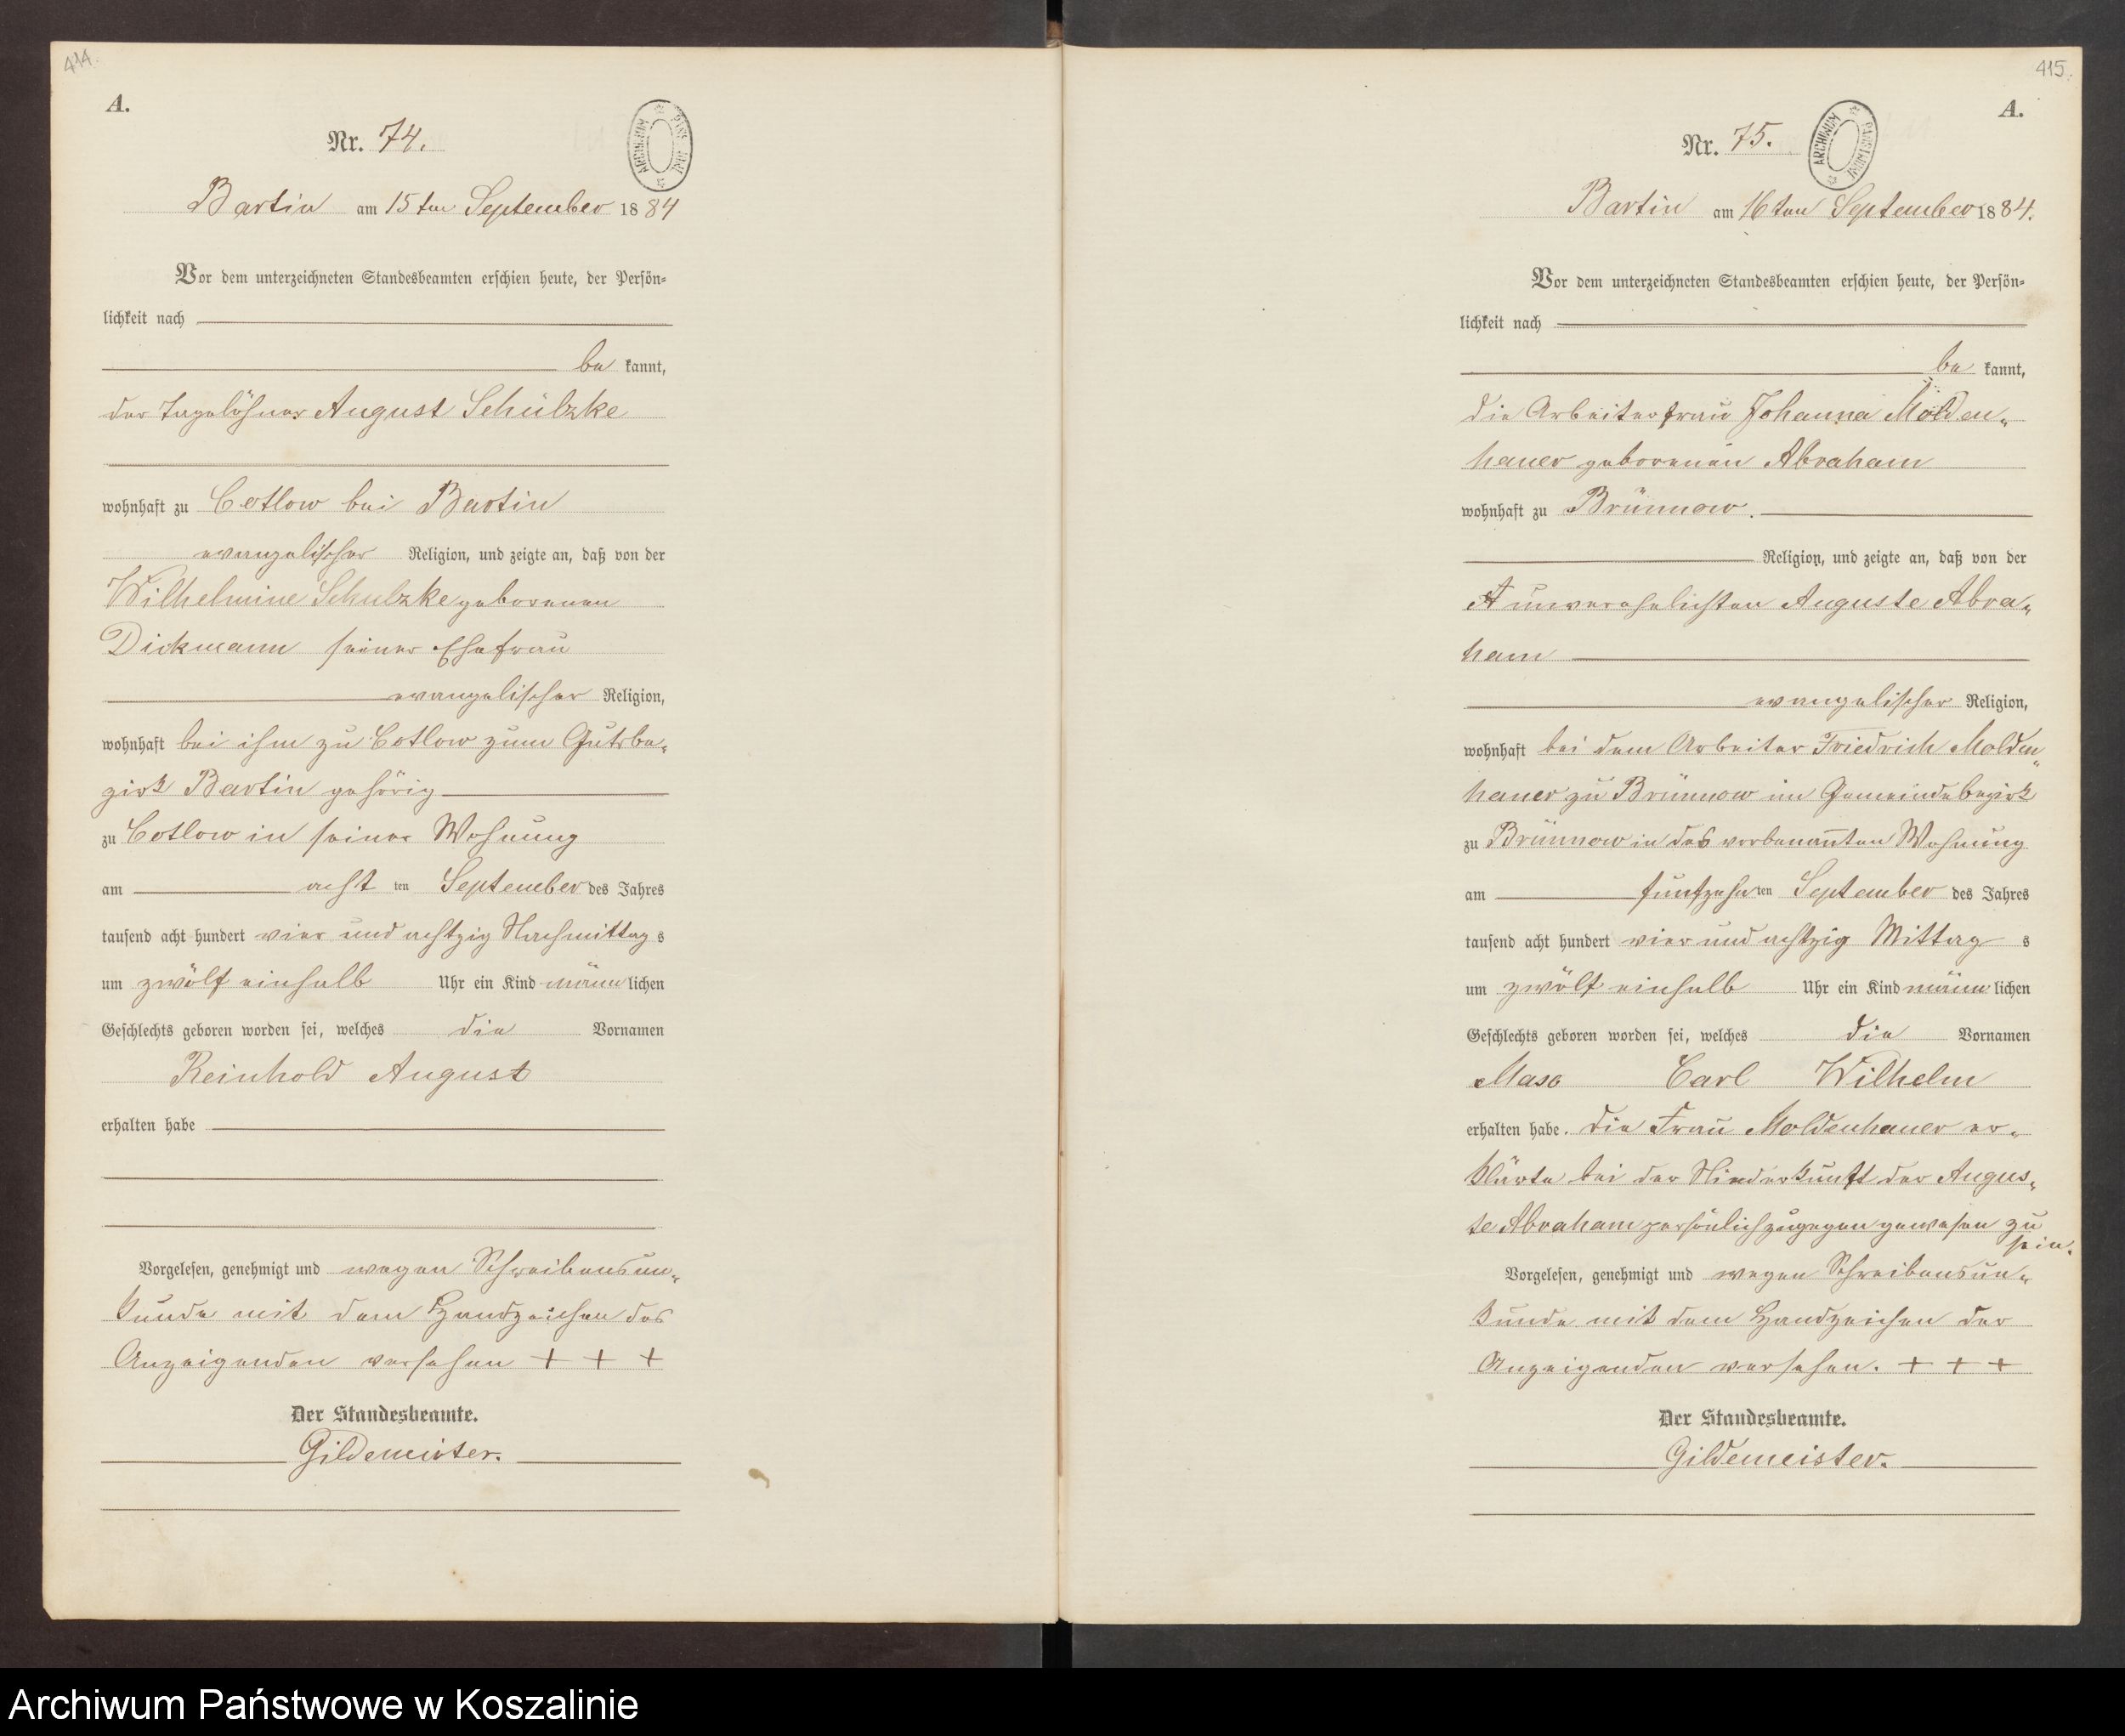 414.
A.
Nr. 74.
ARCHIWUM PAŃSTWOWE
Bartin am 15ten September 1884
Vor dem unterzeichneten Standesbeamten erschien heute, der Persön-
lichkeit nach
be kannt,
der Tagelöhner August Schülzke
wohnhaft zu Cotlow bei Bartin
evangelischer Religion, und zeigte an, daß von der
Wilhelmine Schulzke geborenen
Dickmann seiner Ehefrau
evangelischer Religion,
wohnhaft bei ihm zu Cotlow zum Gutsbe-
zirk Bartin gehörig
zu Cotlow in seiner Wohnung
am acht ten September des Jahres
tausend acht hundert vier und achtzig Nachmittag s
um zwölf einhalb Uhr ein Kind männ lichen
Geschlechts geboren worden sei, welches die Vornamen
Reinhold August
erhalten habe
Vorgelesen, genehmigt und wegen Schreibensun-
kunde mit dem Handzeichen des
Anzeigenden versehen + + +
Der Standesbeamte.
Gildemeister.
415.
A.
Nr. 75.
ARCHIWUM PAŃSTWOWE
Bartin am 16ten September 1884.
Vor dem unterzeichneten Standesbeamten erschien heute, der Persön-
lichkeit nach
be kannt,
die Arbeiterfrau Johanna Molden-
hauer geborenen Abraham
wohnhaft zu Brünnow.
Religion, und zeigte an, daß von der
unverehelichten Auguste Abra-
ham
evangelischer Religion,
wohnhaft bei dem Arbeiter Friedrich Molden-
hauer zu Brünnow im Gemeindebezirk
zu Brünnow in des vorbenannten Wohnung
am fünfzehn ten September des Jahres
tausend acht hundert vier und achtzig Mittag s
um zwölf einhalb Uhr ein Kind männ lichen
Geschlechts geboren worden sei, welches die Vornamen
Max Carl Wilhelm
erhalten habe. Die Frau Moldenhauer er-
klärte bei der Niederkunft der Augus-
te Abraham persönlich zugegen gewesen zu
sein.
Vorgelesen, genehmigt und wegen Schreibensun-
kunde mit dem Handzeichen der
Anzeigenden versehen. + + +
Der Standesbeamte.
Gildemeister.
Archiwum Państwowe w Koszalinie